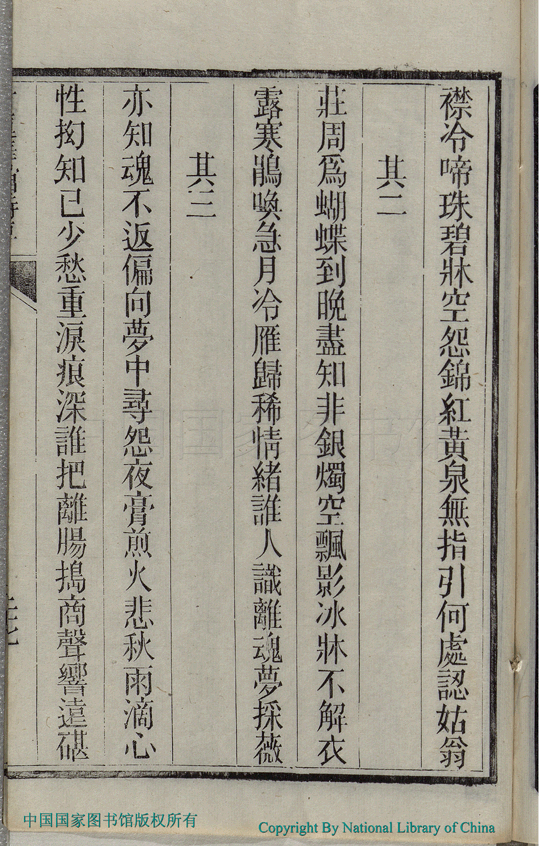 襟冷啼珠碧牀空怨錦紅黃泉無指引何處認姑翁
其二
莊周爲蝴蝶到晚盡知非銀燭空飄影冰牀不解衣
露寒鵑喚急月冷雁歸稀情緒誰人識離魂夢採薇
其三
亦知魂不返偏向夢中尋怨夜膏煎火悲秋雨滴心
性拗知已少愁重淚痕深誰把離腸搗商聲響遠碪
中国国家图书馆版权所有
Copyright By National Library of China